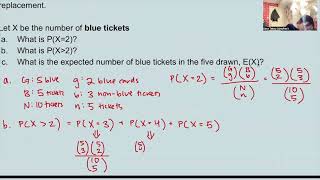 replacement.
Let X be the number of blue tickets
a. What is P(X=2)?
b. What is P(X>2)?
c. What is the expected number of blue tickets in the five drawn, E(X)?
a. G: 5 blue g: 2 blue cards P(X=2) = (G g)(B b) / (N n) = (5 2)(5 3) / (10 5)
B: 5 tickets b: 3 non-blue tickets
N: 10 tickets n: 5 tickets
b. P(X > 2) = P(X=3) + P(X=4) + P(X=5)
(5 3)(5 2) / (10 5) (5